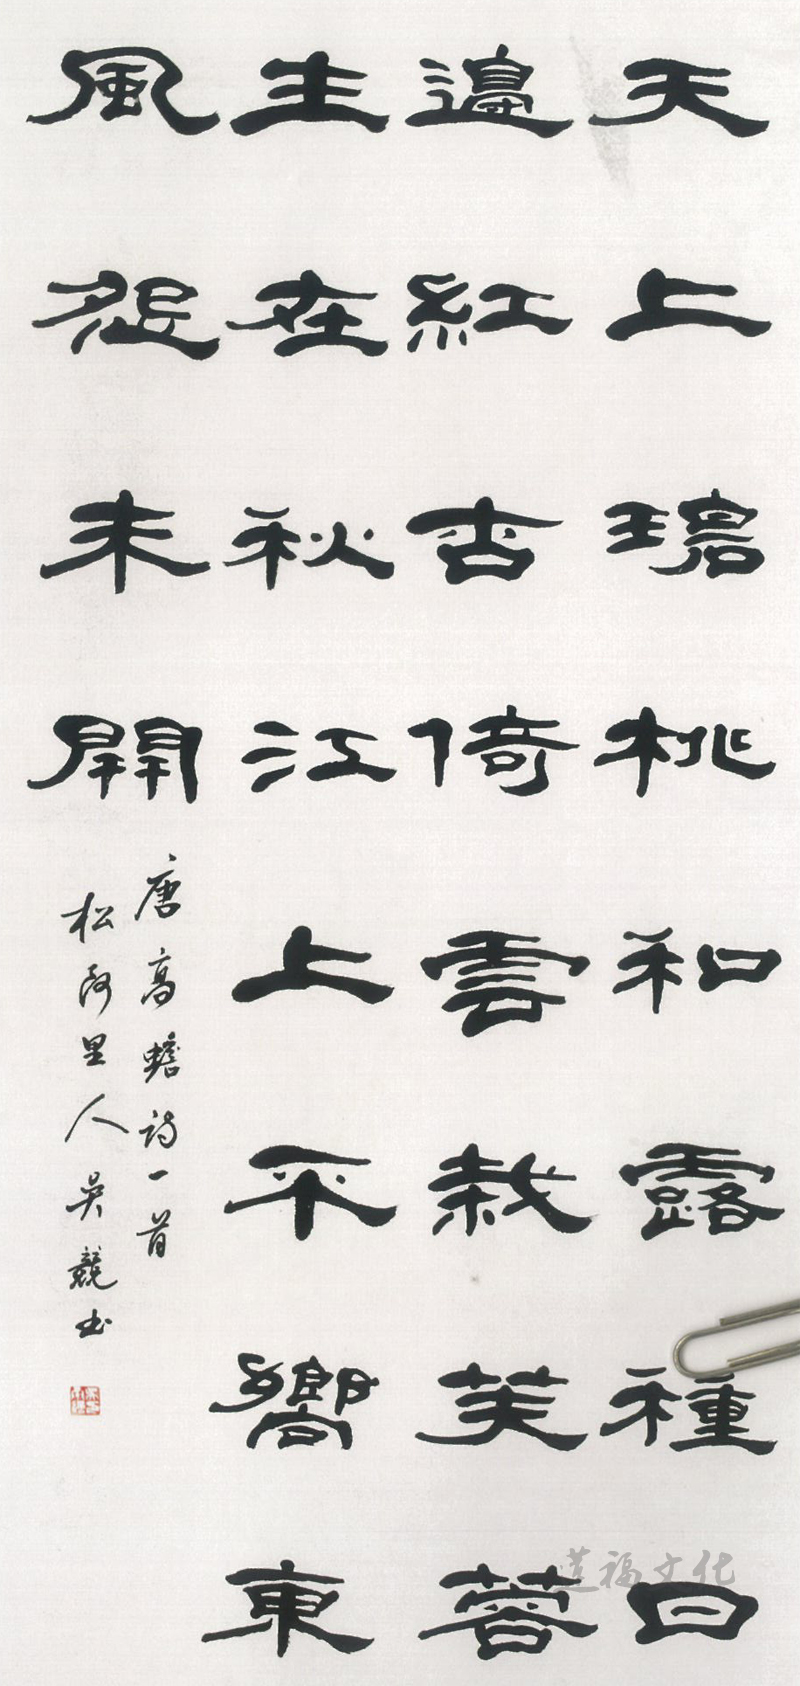 天上碧桃和露種日
邊紅杏倚雲栽芙蓉
生在秋江上不嚮東
風怨未開
唐高蟾詩一首
松里人吳競書
福文化